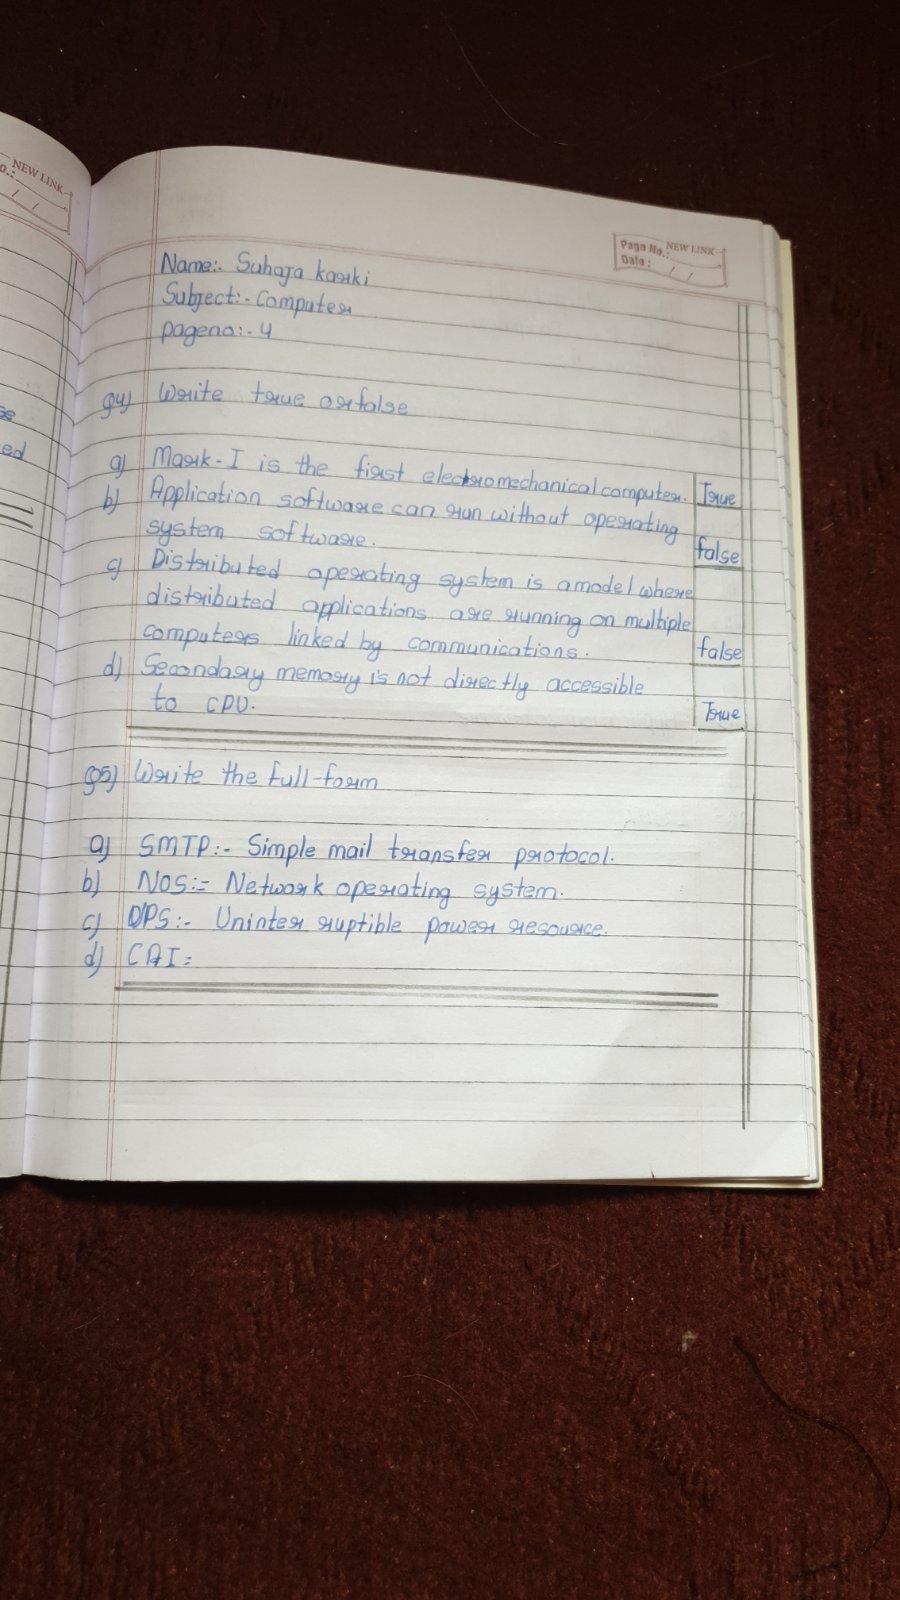 NEW LINK
Page No.: NEW LINK
Date: / /
Name:- Suhaja karki
Subject:- Computer
pageno:- 4
se
ed
Q4) Write true or false
a) Mark-I is the first electromechanical computer. True
b) Application software can run without operating
system software. false
c) Distributed operating system is a model where
distributed applications are running on multiple
computers linked by communications. false
d) Secondary memory is not directly accessible
to CPU. True
Q5) Write the full-form
a) SMTP:- Simple mail transfer protocol.
b) NOS:= Network operating system.
c) UPS:- Uninter ruptible power resource.
d) CAI=